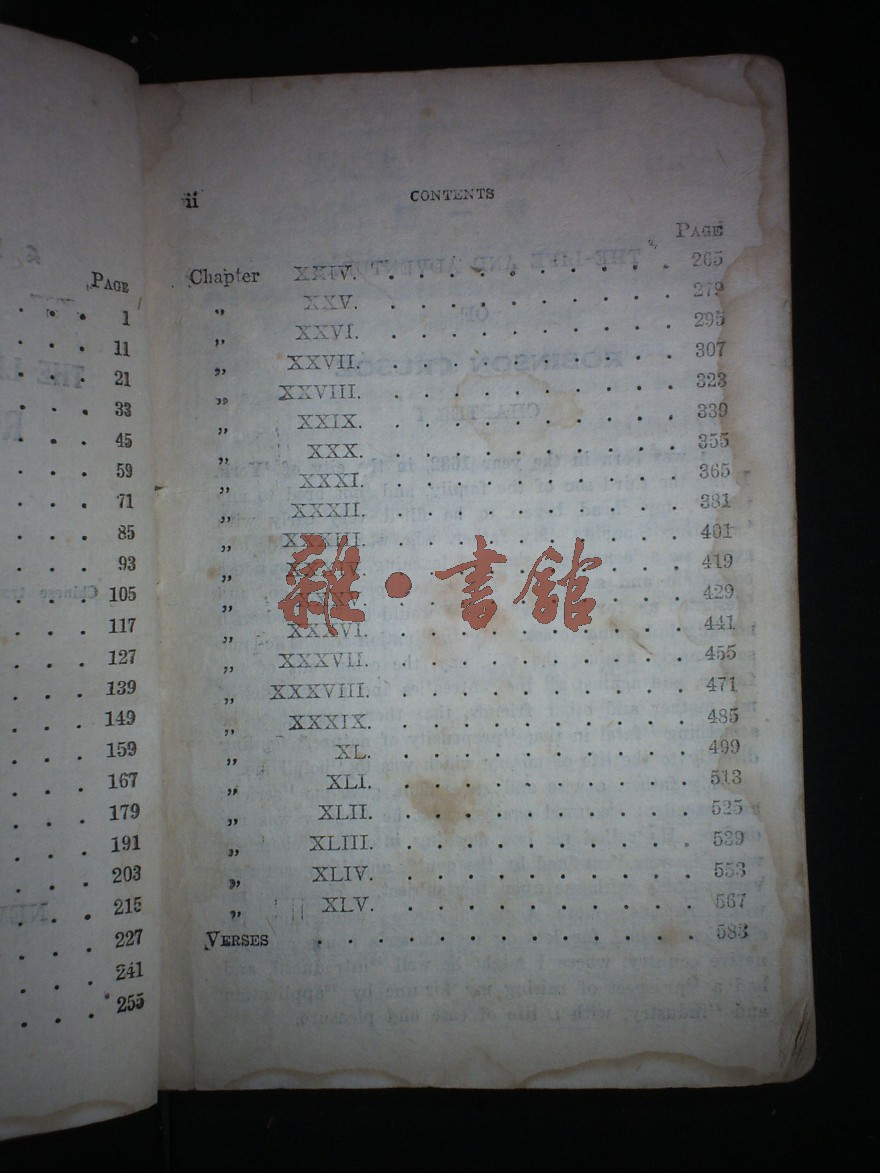 PAGE
1
11
21
33
45
59
71
85
93
105
117
127
139
149
159
167
179
191
203
215
227
241
255
ii CONTENTS
PAGE
Chapter XXIV. . . . . . . . . . . 265
„ XXV. . . . . . . . . . . 279
„ XXVI. . . . . . . . . . . 295
„ XXVII. . . . . . . . . . . 307
„ XXVIII. . . . . . . . . . . 323
„ XXIX. . . . . . . . . . . 339
„ XXX. . . . . . . . . . . 355
„ XXXI. . . . . . . . . . . 365
„ XXXII. . . . . . . . . . . 381
„ XXXIII. . . . . . . . . . . 401
„ XXXIV. . . . . . . . . . . 419
„ XXXV. . . . . . . . . . . 429
雜·書館
„ XXXVI. . . . . . . . . . . 441
„ XXXVII. . . . . . . . . . . 455
„ XXXVIII. . . . . . . . . . . 471
„ XXXIX. . . . . . . . . . . 485
„ XL. . . . . . . . . . . 499
„ XLI. . . . . . . . . . . 513
„ XLII. . . . . . . . . . . 525
„ XLIII. . . . . . . . . . . 539
„ XLIV. . . . . . . . . . . 553
„ XLV. . . . . . . . . . . 567
VERSES . . . . . . . . . . . . . 583